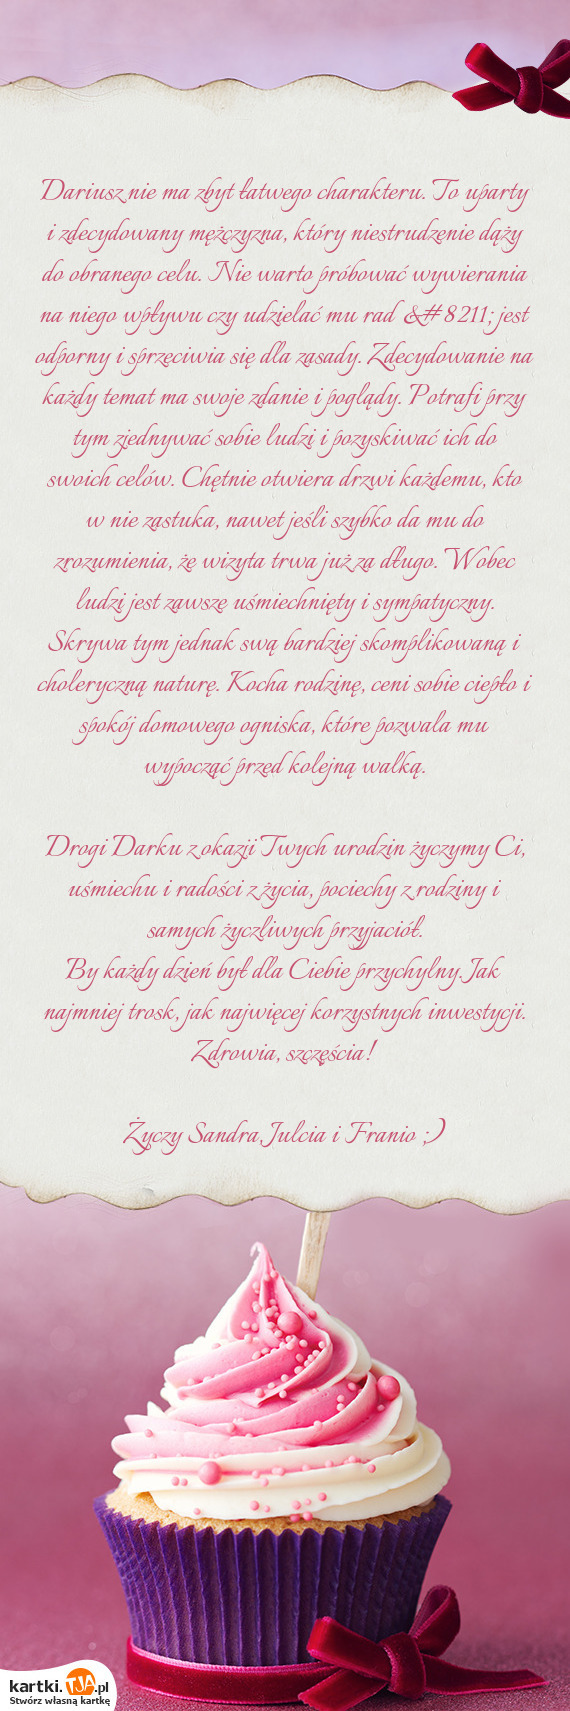 Dariusz nie ma zbyt łatwego charakteru. To uparty
i zdecydowany mężczyzna, który niestrudzenie dąży
do obranego celu. Nie warto próbować wywierania
na niego wpływu czy udzielać mu rad &#8211; jest
odporny i sprzeciwia się dla zasady. Zdecydowanie na
każdy temat ma swoje zdanie i poglądy. Potrafi przy
tym zjednywać sobie ludzi i pozyskiwać ich do
swoich celów. Chętnie otwiera drzwi każdemu, kto
w nie zastuka, nawet jeśli szybko da mu do
zrozumienia, że wizyta trwa już za długo. Wobec
ludzi jest zawsze uśmiechnięty i sympatyczny.
Skrywa tym jednak swą bardziej skomplikowaną i
choleryczną naturę. Kocha rodzinę, ceni sobie ciepło i
spokój domowego ogniska, które pozwala mu
wypocząć przed kolejną walką.
Drogi Darku z okazji Twych urodzin życzymy Ci,
uśmiechu i radości z życia, pociechy z rodziny i
samych życzliwych przyjaciół.
By każdy dzień był dla Ciebie przychylny. Jak
najmniej trosk, jak najwięcej korzystnych inwestycji.
Zdrowia, szczęścia!
Życzy Sandra, Julcia i Franio ;)
kartki.TJA.pl
Stwórz własną kartkę